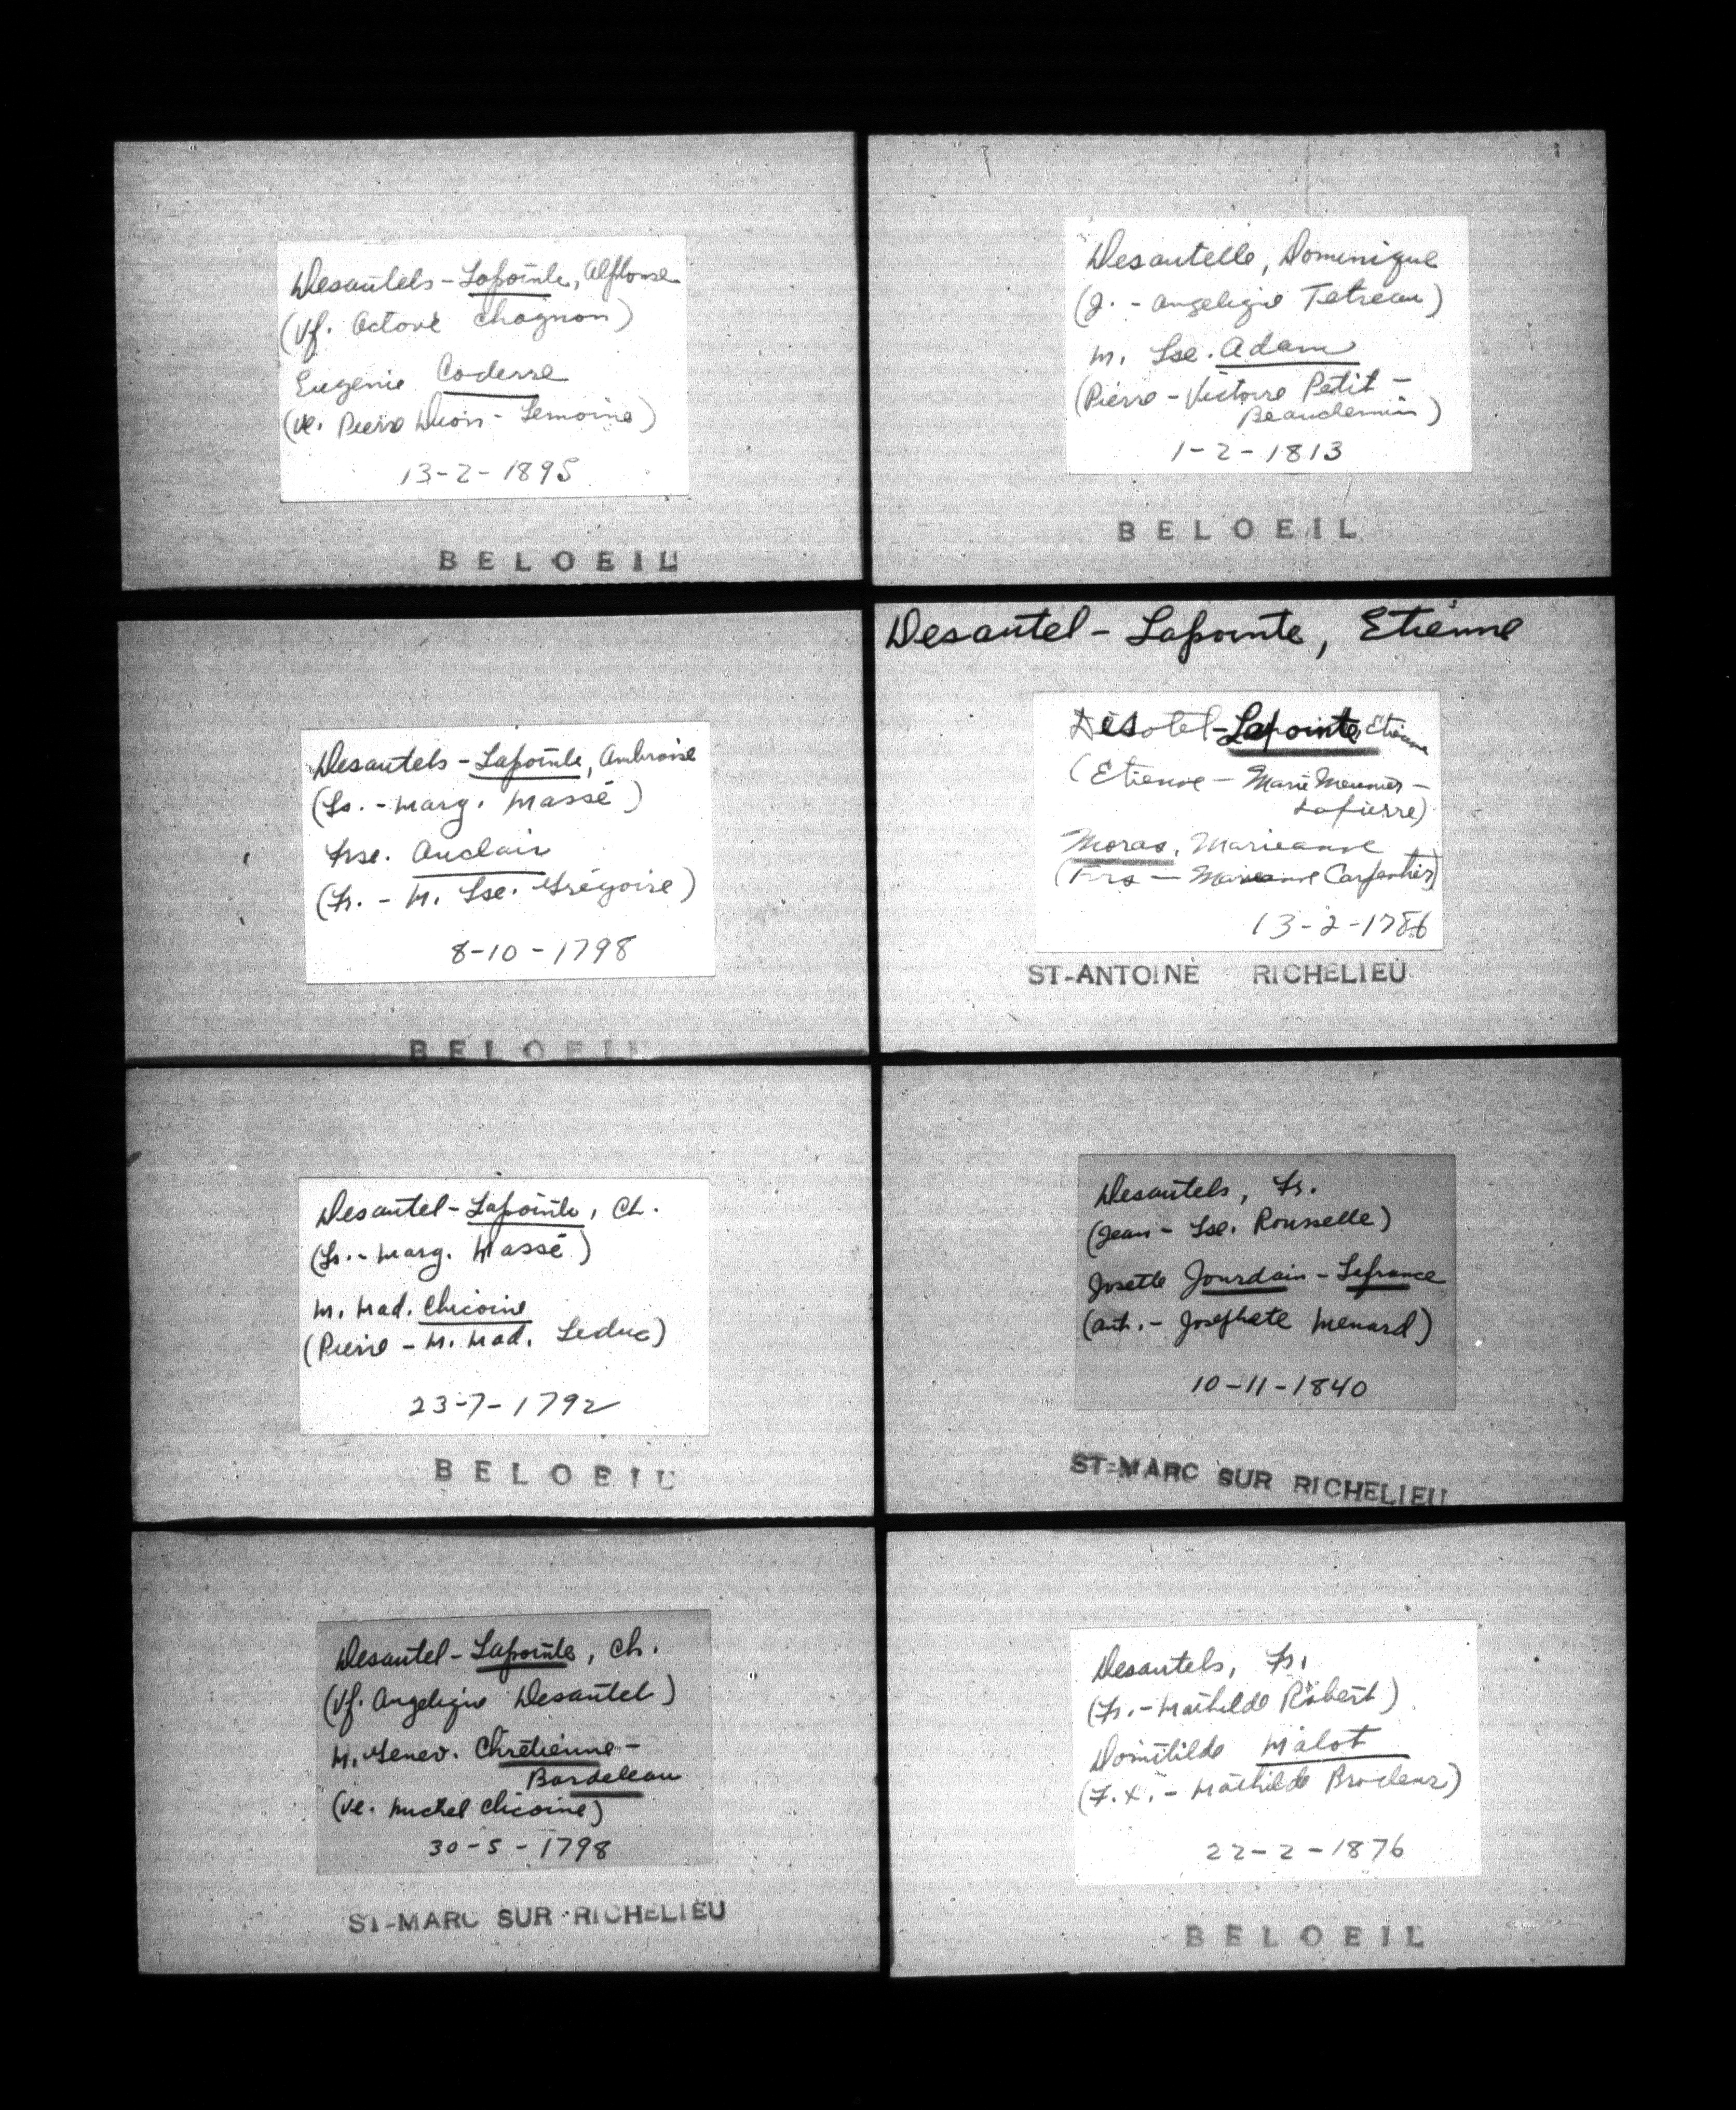 Desautels-Lapointe, Alphonse
(Vf. Octavé Chagnon)
Eugenie Coderre
(Ve. Pierre Duois-Lemoine)
13-2-1895
BELOEIL
Desautels-Lapointe, Ambroise
(Ls.-Marg. Massé)
Frse. Auclair
(Fr.-M. Lse. Grégoire)
8-10-1798
BELOEIL
Desautel-Lapointe, Ch.
(Ls.-Marg. Massé)
M. Mad. Chicoine
(Pierre-M. Mad. Leduc)
23-7-1792
BELOEIL
Desautel-Lapointe, Ch.
(Vf. Angeliqie Desautel)
M. Genev. Chrétienne-
Bordeleau
(Ve. Michel Chicoine)
30-5-1798
ST-MARC SUR RICHELIEU
Desautelle, Dominique
(J.-Angeliqie Tetreau)
M. Lse. Adam
(Pierre-Victoire Petit-
Beauchemin)
1-2-1813
BELOEIL
Desautel-Lapointe, Etienne
Désotel-Lapointe Etienne
(Etienne-Marie Meunier-
Lapierre)
Moras, Marieanne
(Frs-Marieanne Carpentier)
13-2-1786
ST-ANTOINE RICHELIEU
Desautels, Fr.
(Jean-Lse. Rousselle)
Josette Jourdain-Lafrance
(Ant.-Josephete Menard)
10-11-1840
ST-MARC SUR RICHELIEU
Desautels, Fr.
(Fr.-Mathilde Robert)
Domitilde Malot
(F.X.-Mathilde Brodeur)
22-2-1876
BELOEIL